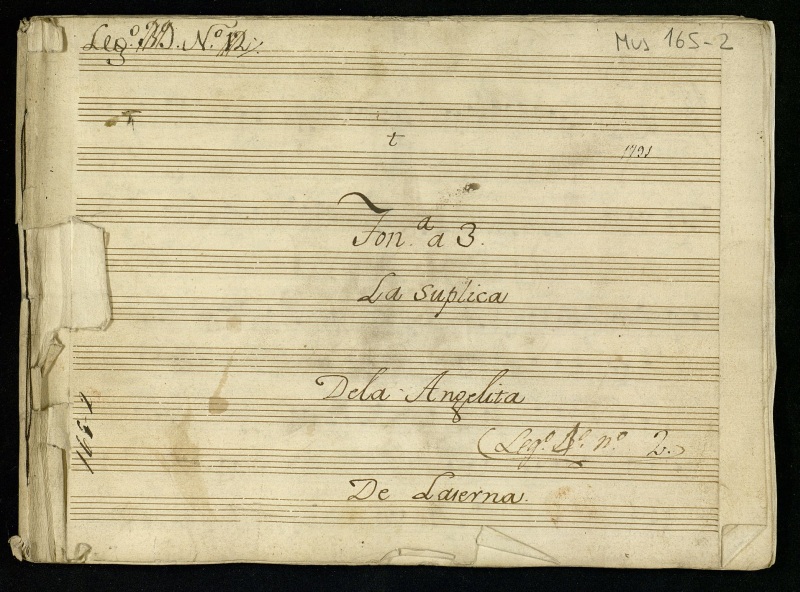 Leg.º Nº 12
Mus 165-2
t
1791
Ton.ª a 3.
La Suplica
De la Angelita
(Leg.º nº 2.)
De Laserna.